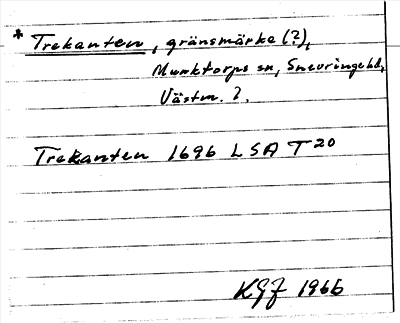 * Trekanten, gränsmärke (?),
Munktorps sn, Snevringe hd,
Västm. ?.
Trekanten 1696 LSA T 20
KGJ 1966